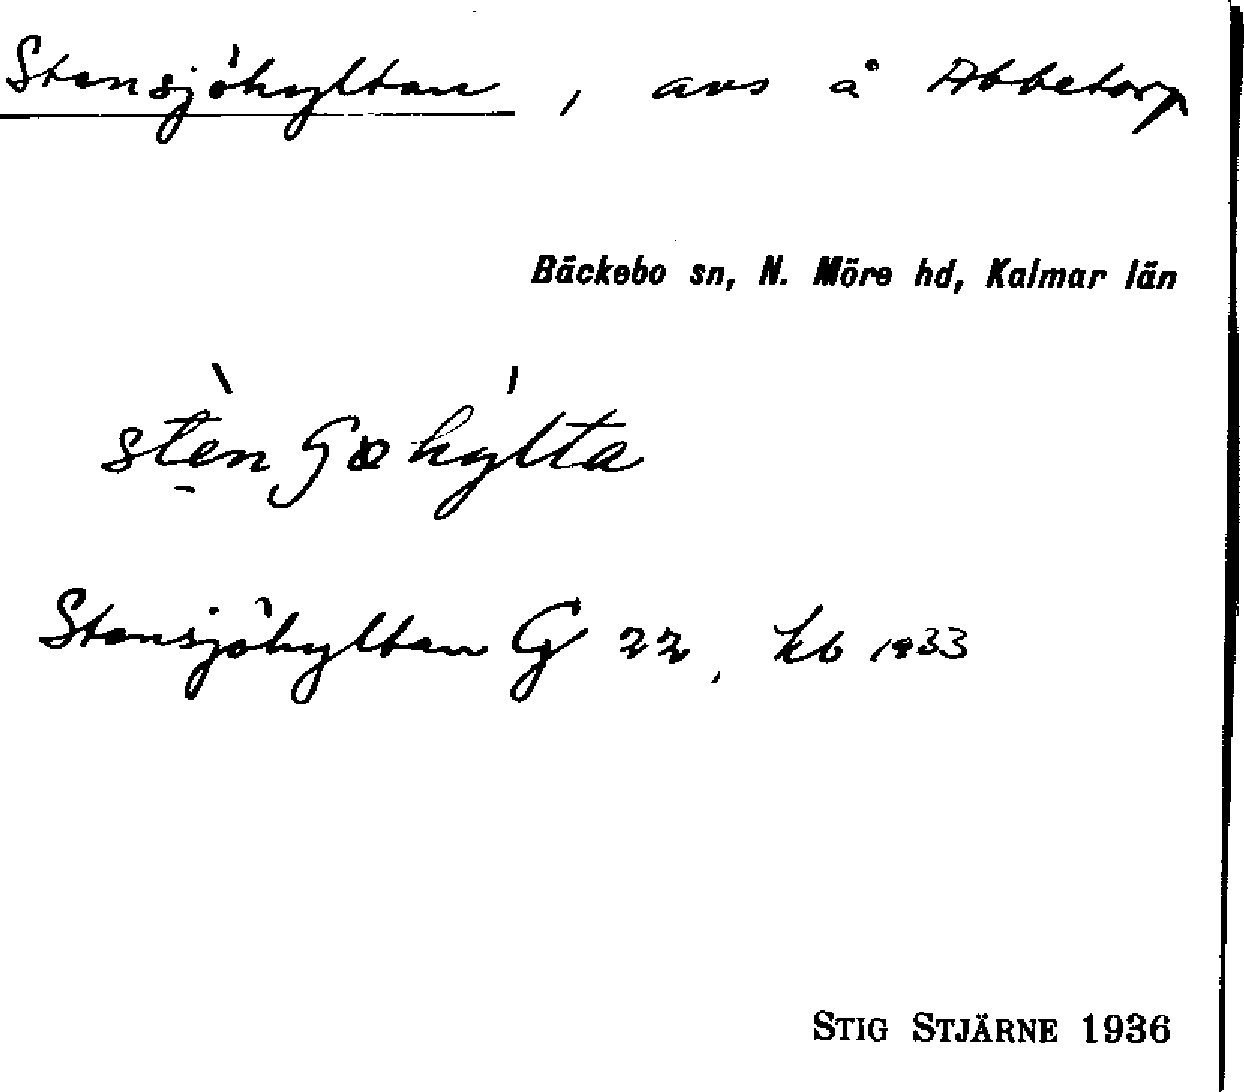 Stensjöhyltan, avs å Abbetorp
Bäckebo sn, N. Möre hd, Kalmar län
Stensjöhyltan G 22, kb 1933
STIG STJÄRNE 1936